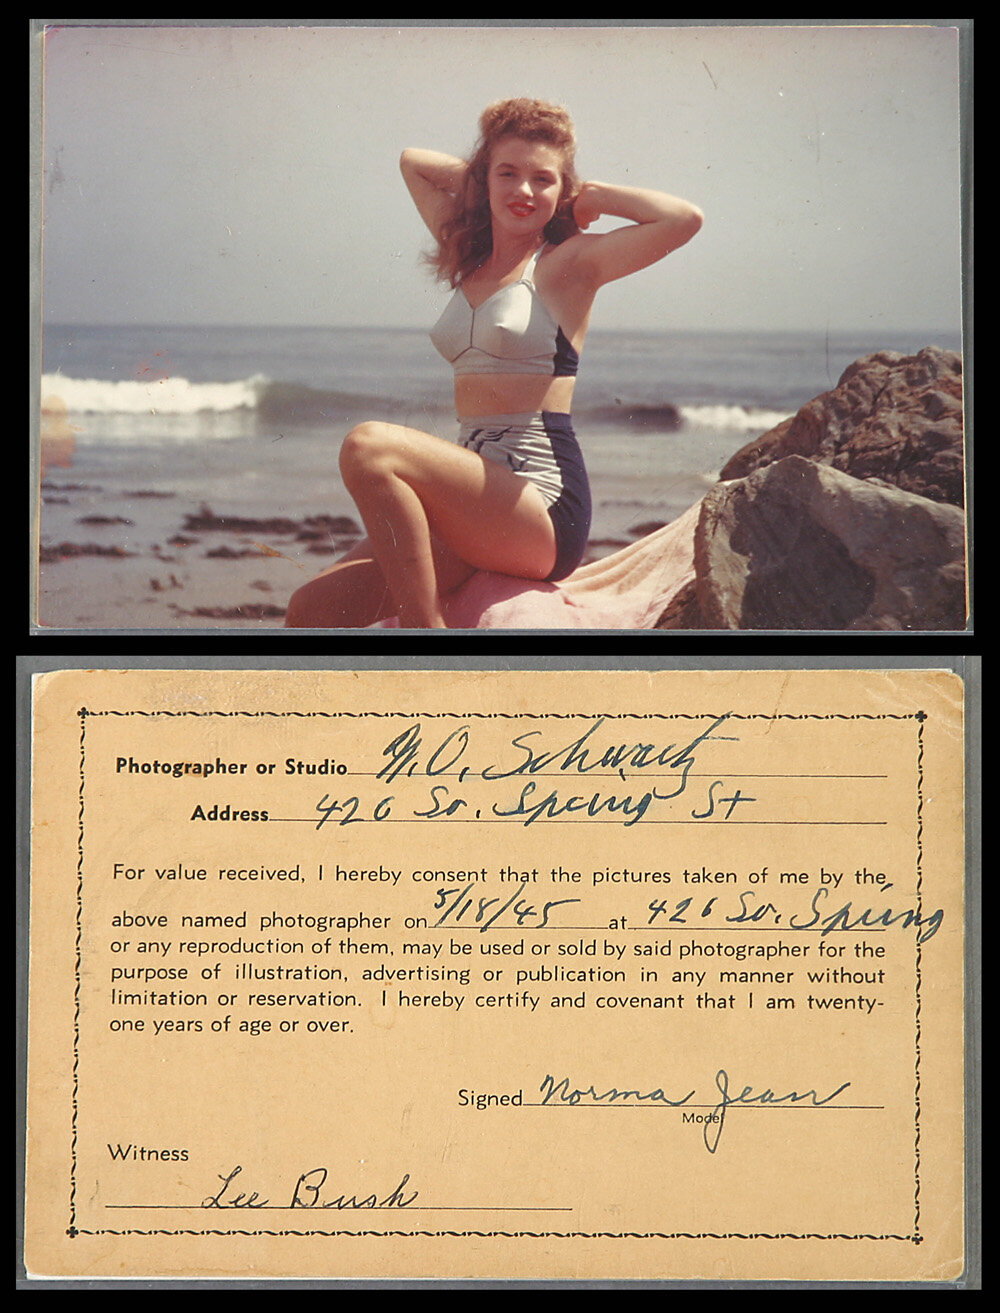 Photographer or Studio W.O. Schwartz
Address 426 So. Spring St
For value received, I hereby consent that the pictures taken of me by the
above named photographer on 5/18/45 at 426 So. Spring
or any reproduction of them, may be used or sold by said photographer for the
purpose of illustration, advertising or publication in any manner without
limitation or reservation. I hereby certify and covenant that I am twenty-
one years of age or over.
Signed Norma Jean
Model
Witness
Lee Bush